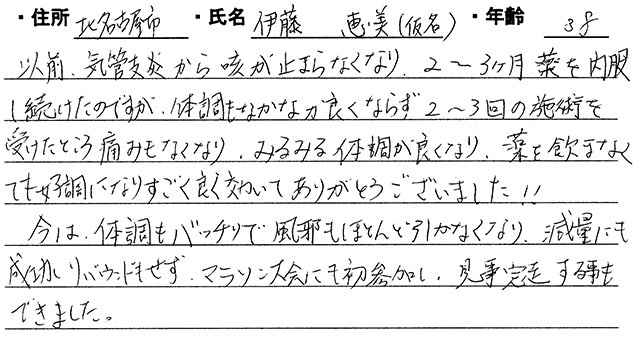 ・住所 北名古屋市 ・氏名 伊藤 恵美(仮名) ・年齢 38
以前、気管支炎から咳が止まらなくなり、2～3ヶ月薬を内服
し続けたのですが、体調もなかなか良くならず2～3回の施術を
受けたところ痛みもなくなり、みるみる体調が良くなり、薬を飲まなく
ても好調になりすごく良く効いてありがとうございました!!
今は、体調もバッチリで風邪もほとんど引かなくなり、減量にも
成功しリバウンドもせず、マラソン大会にも初参加し、見事完走する事も
できました。